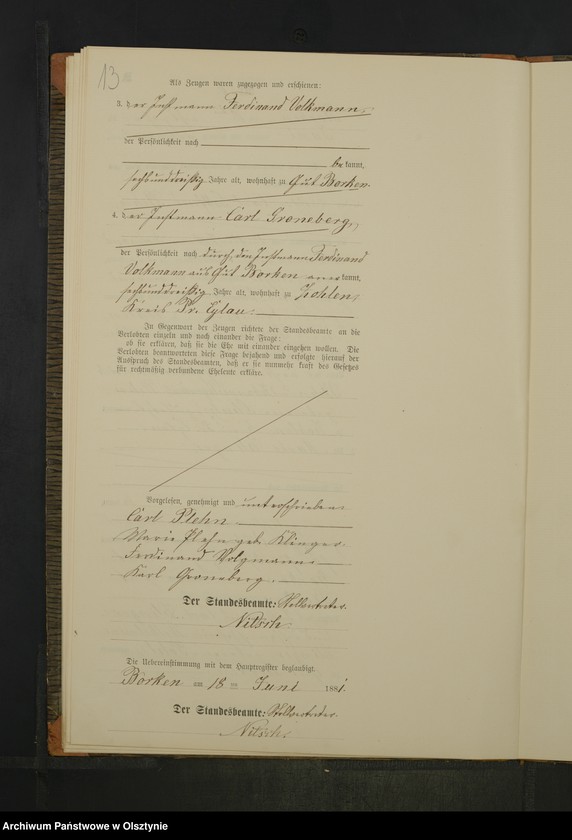 13
Als Zeugen waren zugezogen und erschienen:
3. der Instmann Ferdinand Volkmann,
der Persönlichkeit nach
bekannt,
sechsunddreißig Jahre alt, wohnhaft zu Gut Borken.
4. der Instmann Carl Groneberg,
der Persönlichkeit nach durch den Instmann Ferdinand
Volkmann aus Gut Borken anerkannt,
sechsunddreißig Jahre alt, wohnhaft zu Zohlen,
Kreis Pr. Eylau.
In Gegenwart der Zeugen richtete der Standesbeamte an die
Verlobten einzeln und nach einander die Frage:
ob sie erklären, daß sie die Ehe mit einander eingehen wollen. Die
Verlobten beantworteten diese Frage bejahend und erfolgte hierauf der
Ausspruch des Standesbeamten, daß er sie nunmehr kraft des Gesetzes
für rechtmäßig verbundene Eheleute erkläre.
Vorgelesen, genehmigt und unterschrieben
Carl Plehn
Marie Plehn geb. Klinger.
Ferdinand Volgmann
Karl Groneberg.
Der Standesbeamte: Stellvertreter.
Nitsch.
Die Uebereinstimmung mit dem Hauptregister beglaubigt.
Borken am 18 ten Juni 1881.
Der Standesbeamte: Stellvertreter.
Nitsch.
Archiwum Państwowe w Olsztynie